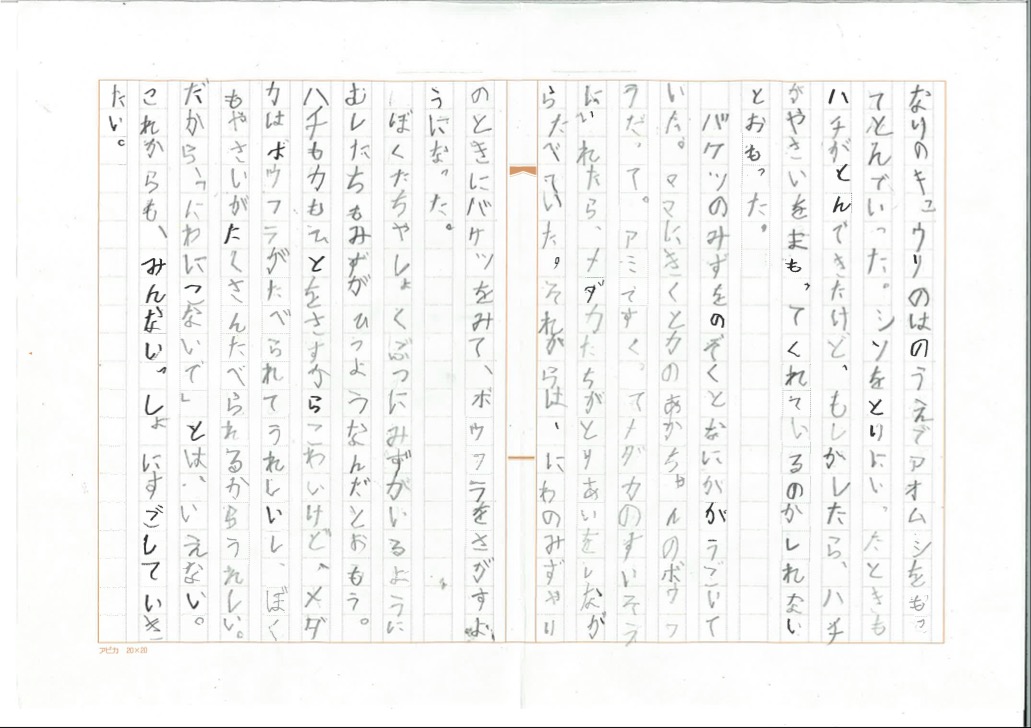 なりのキュウリのはのうえでアオムシをもっ
てとんでいった。シソをとりにいったときも
ハチがとんできたけど、もしかしたら、ハチ
がやさいをまもってくれているのかしれない
とおもった。
バケツのみずをのぞくとなにかがうごいて
いた。ママにきくとカのあかちゃんのボウフ
ラだって。アミですくってメダカのすいそう
にいれたら、メダカたちがとりあいをしなが
らたべていた。それからは、にわのみずやり
のときにバケツをみて、ボウフラをさがすよ
うになった。
ぼくたちやしょくぶつにみずがいるように
むしたちもみずがひつようなんだとおもう。
ハチもカもひとをさすからこわいけど、メダ
カはボウフラがたべられてうれしいし、ぼく
もやさいがたくさんたべられるからうれしい。
だから、「にわにこないで」とは、いえない。
これからも、みんないっしょにすごしていき
たい。
アピカ 20×20